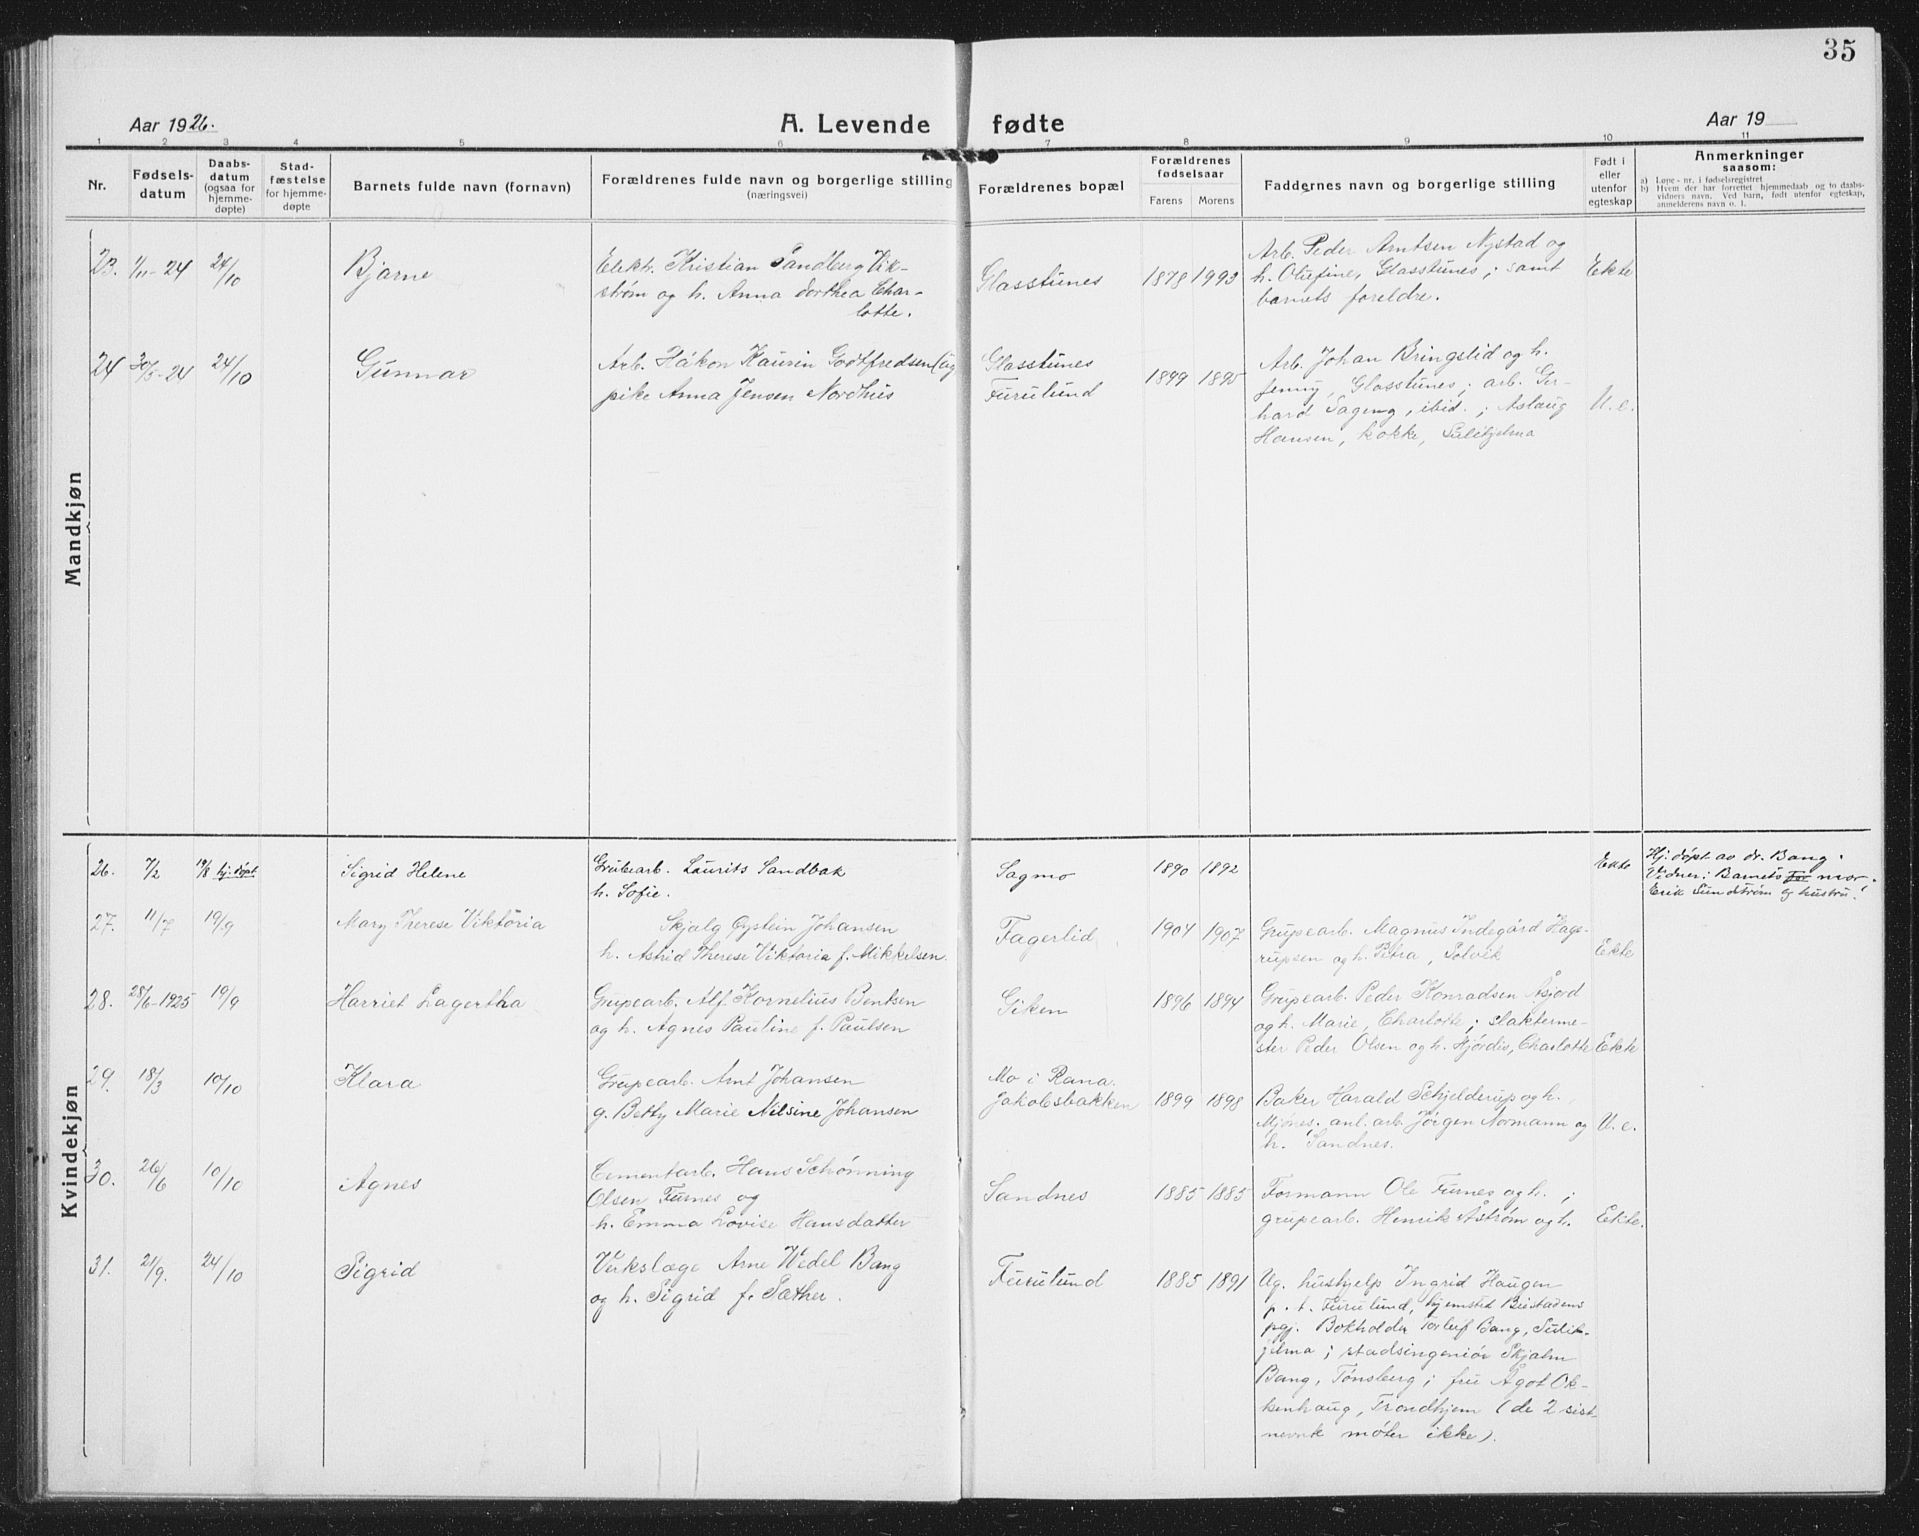 35
Aar 1926.
A. Levende fødte
Aar 19
1 2 3 4 5 6 7 8 9 10 11
Nr.
Fødsels-
datum
Daabs-
datum
(ogsaa for
hjemme-
døpte)
Stad-
fæstelse
for hjemme-
døpte
Barnets fulde navn (fornavn)
Forældrenes fulde navn og borgerlige stilling
(næringsvei)
Forældrenes bopæl
Forældrenes
fødselsaar
Farens Morens
Faddernes navn og borgerlige stilling
Født i
eller
utenfor
egteskap
Anmerkninger
saasom:
a) Løpe-nr. i fødselsregistret
b) Hvem der har forrettet hjemmedaab og to daabs-
vidners navn. Ved barn, født utenfor egteskap,
anmelderens navn o. l.
Mandkjøn
23. 1/11-24 24/10 Bjarne
Elektr. Kristian Sandberg Vik-
strøm og h. Anna Dorthea Char-
lotte.
Glasstunes 1878 1993
Arb. Peder Arntsen Nystad og
h. Olufine, Glasstunes; samt
barnets foreldre.
Ekte
24 30/5-24 24/10 Gunnar
Arb. Håkon Kaurin Godtfredsen (og
pike Anna Jensen Nordhus
Glasstunes
Furulund
1899 1895
Arb. Johan Bringslid og h.
Jenny, Glasstunes; arb. Ger-
hard Sageng, ibid.; Aslaug
Hansen, kokke, Sulitjelma
U. e.
Kvindekjøn
26. 7/2 19/8 hj. døpt Sigrid Helene
Grubearb. Laurits Sandbak
h. Sofie.
Sagmo 1890 1892 Ekte
Hj. døpt av dr. Bang.
Vidner: Barnets far mor;
Erik Sundstrøm og hustru.
27. 11/7 19/9 Mary Therese Viktoria
Skjalg Øystein Johansen
h. Astrid Therese Viktoria f. Mikkelsen.
Fagerlid 1904 1907
Grupearb. Magnus Indegård Hage-
rupsen og h. Petra, Solvik
Ekte
28. 28/6-1925 19/9 Harriet Lagertha
Grupearb. Alf. Kornelius Bentsen
og h. Agnes Pauline f. Paulsen
Giken 1896 1894
Grupearb. Peder Konradsen Åsjord
og h. Marie, Charlotte; slakterme-
ster Peder Olsen og h. Hjørdis, Charlotte
Ekte
29. 18/3 10/10 Klara
Grupearb. Arnt Johansen
g. Betty Marie Nilsine Johansen
Mo i Rana.
Jakobsbakken
1899 1898
Baker Harald Schjelderup og h.
Mjønes. anl. arb. Jørgen Normann og
h. Sandnes.
U. e.
30. 26/6 10/10 Agnes
Cementarb. Hans Schønning
Olsen Furnes og
h. Emma Lovise Hansdatter
Sandnes 1885 1885
Formann Ole Furnes og h.;
grupearb. Henrik Åstrøm og h.
Ekte.
31. 21/9. 24/10 Sigrid
Verkslæge Arne Wedel Bang
og h. Sigrid f. Sæther.
Furulund 1885 1891
Ug. hushjelp Ingrid Haugen
p. t. Furulund, hjemsted Beistadens
pgj. Bokholder Torleif Bang, Sulit-
jelma; stadsingeniør Skjalm
Bang, Tønsberg; fru Ågot Ok-
kenhaug, Trondhjem (de 2 sist-
nevnte møter ikke).